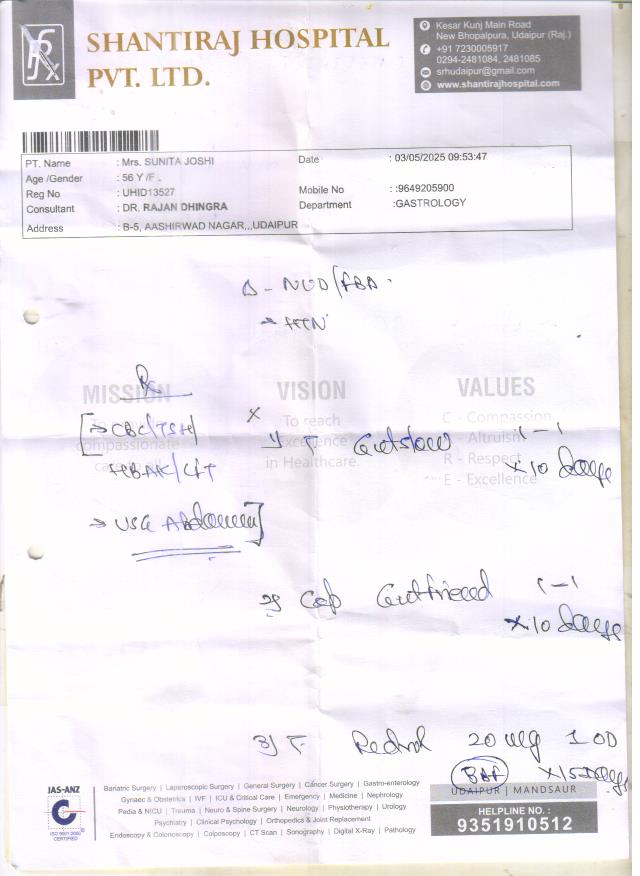 SHANTIRAJ HOSPITAL
PVT. LTD.
Kesar Kunj Main Road
New Bhopalpura, Udaipur (Raj.)
+91 7230005917
0294-2481084, 2481085
srhudaipur@gmail.com
www.shantirajhospital.com
PT. Name : Mrs. SUNITA JOSHI Date : 03/05/2025 09:53:47
Age /Gender : 56 Y /F .
Reg No : UHID13527 Mobile No : :9649205900
Consultant : DR. RAJAN DHINGRA Department :GASTROLOGY
Address : B-5, AASHIRWAD NAGAR,,,UDAIPUR
Δ - NUD/FBD.
→ HTN
Rx
MISSION VISION VALUES
To reach
Excellence
in Healthcare.
C - Compassion
A - Altruism
R - Respect
E - Excellence
compassionate
[→ CBC/TSH
/LFT
→ USG Abdomen]
1) T. 1-1
x 10 days
2) Cap 1-1
x 10 days
3) T. 20 mg 1 OD
BBF x 15 days
UDAIPUR | MANDSAUR
HELPLINE NO. :
9351910512
JAS-ANZ
ISO 9001:2000
CERTIFIED
Bariatric Surgery | Laparoscopic Surgery | General Surgery | Cancer Surgery | Gastro-enterology
Gynaec & Obstetrics | IVF | ICU & Critical Care | Emergency | Medicine | Nephrology
Pedia & NICU | Trauma | Neuro & Spine Surgery | Neurology | Physiotherapy | Urology
Psychiatry | Clinical Psychology | Orthopedics & Joint Replacement
Endoscopy & Colonoscopy | Colposcopy | CT Scan | Sonography | Digital X-Ray | Pathology